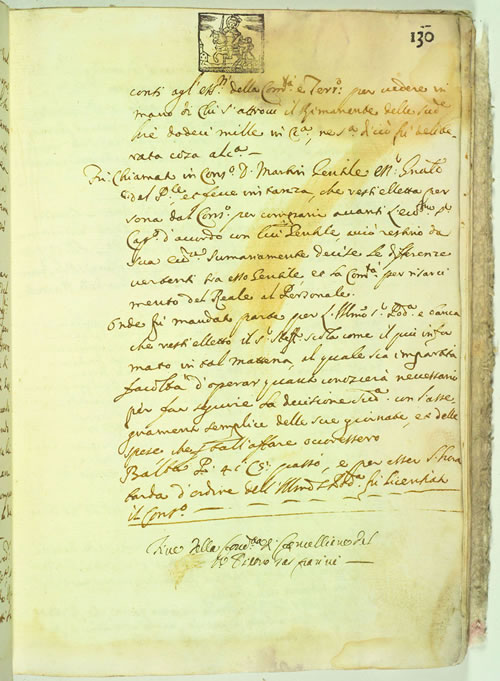 130
conti agl'ess.ri della Com.tà e Terr.o per vedere in
mano di chi s'attrovi il Rimanente delle sud.e
dodeci mille in ne s'è di ciò fù delibe-
rata cosa alc.a —
Fù chiamat in Cons.o D. Martin Gentile
et fece instanza, che resti elletta per
sona dal Cons.o per comparir avanti l'ecc.mo
Cap.o d'accordo con lui Gentile acciò restino da
sua ecc.a sumariamente decise le differenze
vertenti tra esso Gentile, et la Com.tà per risarci
mento del Reale al Personale.
Onde fù mandato parte per s. Illmo s.r Pod.a e banca
che resti elletto il s.r come il più infor
mato in tal materia, al quale sia impartita
facoltà d'operar quanto conoscerà necessario
per far seguire la decisione con l'asse-
gnamento semplice delle sue giornate, et delle
spese che tall'affare occoressero
Ballà P. 4. C. 5: passò, e per esser l'hora
tarda d'ordine dell'Illmo s. Pod.a fù licentiato
il Cons.o
Fine della Cancelliere del